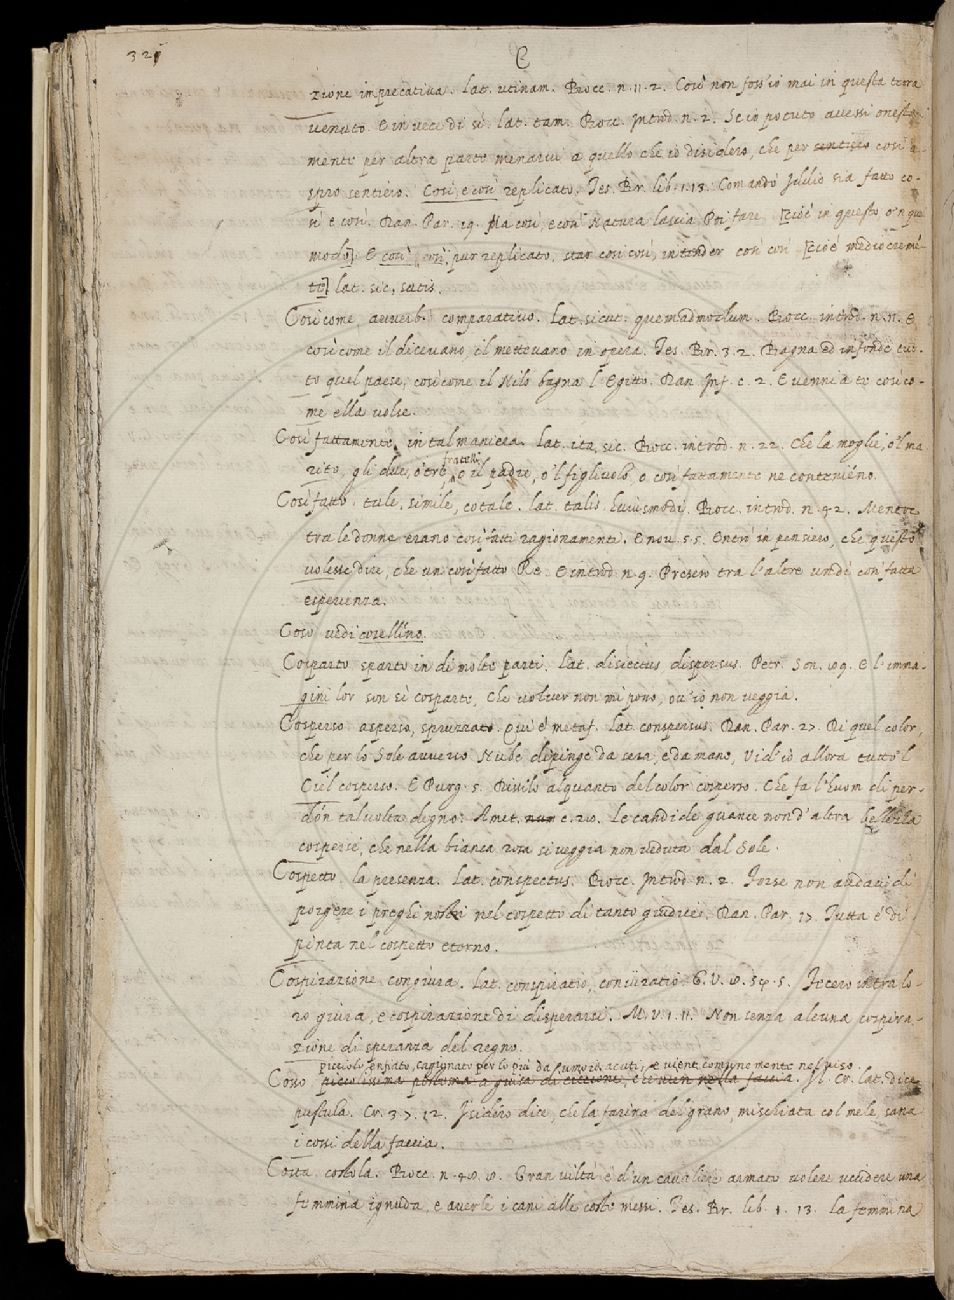 321
C
zione imprecativa. Lat. utinam. Bocc. n. 11. 2. Così non foss'io mai in questa terra
venuto. E in vece di sì. Lat. tam. Bocc. Introd. n. 2. Se io potuto avessi onesta
mente per altra parte menarvi a quello che io disidero, che per sentiero così a-
spro sentiero. Così, e così replicato. Tes. Br. lib. 1. 13. Comandò Iddio sia fatto co-
sì e così. Dan. Par. 19. Ma così, e così Natura lascia Poi fare [cioè in questo, o 'n que
modo]. E così così, pur replicato, star così così, intender così così [cioè mediocreme
te] lat. sic, satis.
Così come, avverb. comparativo. Lat. sicut. quemadmodum. Bocc. introd. n. 11. E
così come il dicevano, il mettevano in opera. Tes. Br. 3. 2. Bagna ed infonde tut-
to quel paese, così come il Nilo bagna l'Egitto. Dan. Inf. c. 2. E venni a te così co-
me ella volse.
Così fattamente, in tal maniera. Lat. ita, sic. Bocc. introd. n. 22. Che la moglie, o'l ma
rito, gli due, o tre fratelli, o il padre, o 'l figliuolo, o così fattamente ne contenieno.
Così fatto. tale, simile, cotale. Lat. talis huiusmodi. Bocc. introd. n. 42. Mentre
tra le donne erano così fatti ragionamenti. E nov. 5. 5. Entrò in pensiero, che questo
volesse dire, che un così fatto Re. E introd. n. 9. Presero tra l'altre un dì così fatta
esperienza.
Coso vedi cosellino.
Cosparto sparto in di molte parti. Lat. disiectus dispersus. Petr. Son. E l'imma-
gini lor son sì cosparte, Che volver non mi pono, ov' io non veggia.
Cosperso. asperso, spruzzato. Qui è metaf. Lat. conspersus. Dan. Par. 27. Di quel color,
che per lo Sole avverso Nube dipinge da sera, e da mane, Vid'io allora tutto 'l
Ciel cosperso. E Purg. 5. Dissilo alquanto del color cosperso. Che fa l'huom di per-
dón talvolta degno. Amet. num c. 20. Le candide guance non d'altra bellezza
cosperse, che nella bianca rosa si veggia non veduta dal Sole.
Cospetto. la presenza. Lat. conspectus. Bocc. Introd. n. 2. Forse non audavi di
porgere i preghi nostri nel cospetto di tanto giudice. Dan. Par. 17. Tutta è di-
pinta nel cospetto eterno.
Cospirazione congiura. Lat. conspiratio, coniuratio. G. V. Fecero intra lo-
ro giura, e cospirazione di disperarsi. M. V. 1. 11. Non senza alcuna cospira-
zione di speranza del regno.
piccolo enfiato, cagionato per lo più da humori acuti, e vient comunemente nel viso.
Cosso piccolissima postema a guisa di cicciune, che vien nella faccia. Il Cr. lat. dice
pustula. Cr. 3. 7. 12. Isidero dice, che la farina del grano, mischiata col mele, sana
i cossi della faccia.
Costa costola. Bocc. n. Gran viltà è d'un cavaliere armato volere uccidere una
femmina ignuda, e averle i cani alle coste messi. Tes. Br. lib. 1. 13. La femmina